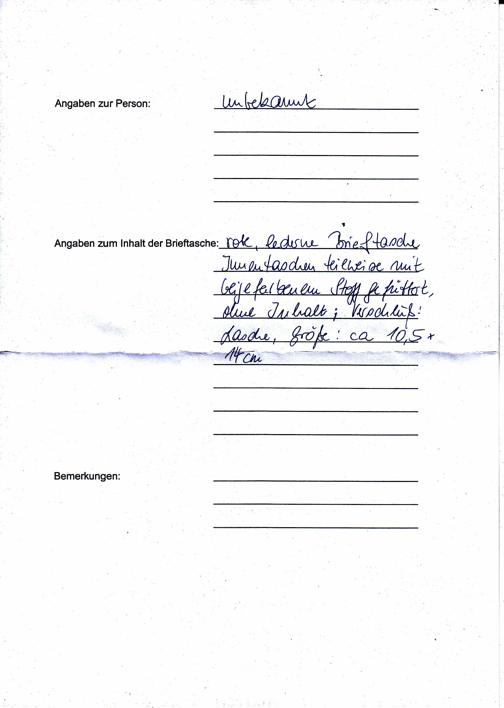 Angaben zur Person: unbekannt
Angaben zum Inhalt der Brieftasche: rote, lederne Brieftasche
Innentaschen teilweise mit
beigefarbenem Stoff gefüttert,
ohne Inhalt; Verschluß:
Lasche, Größe: ca 10,5 x
14 cm
Bemerkungen: